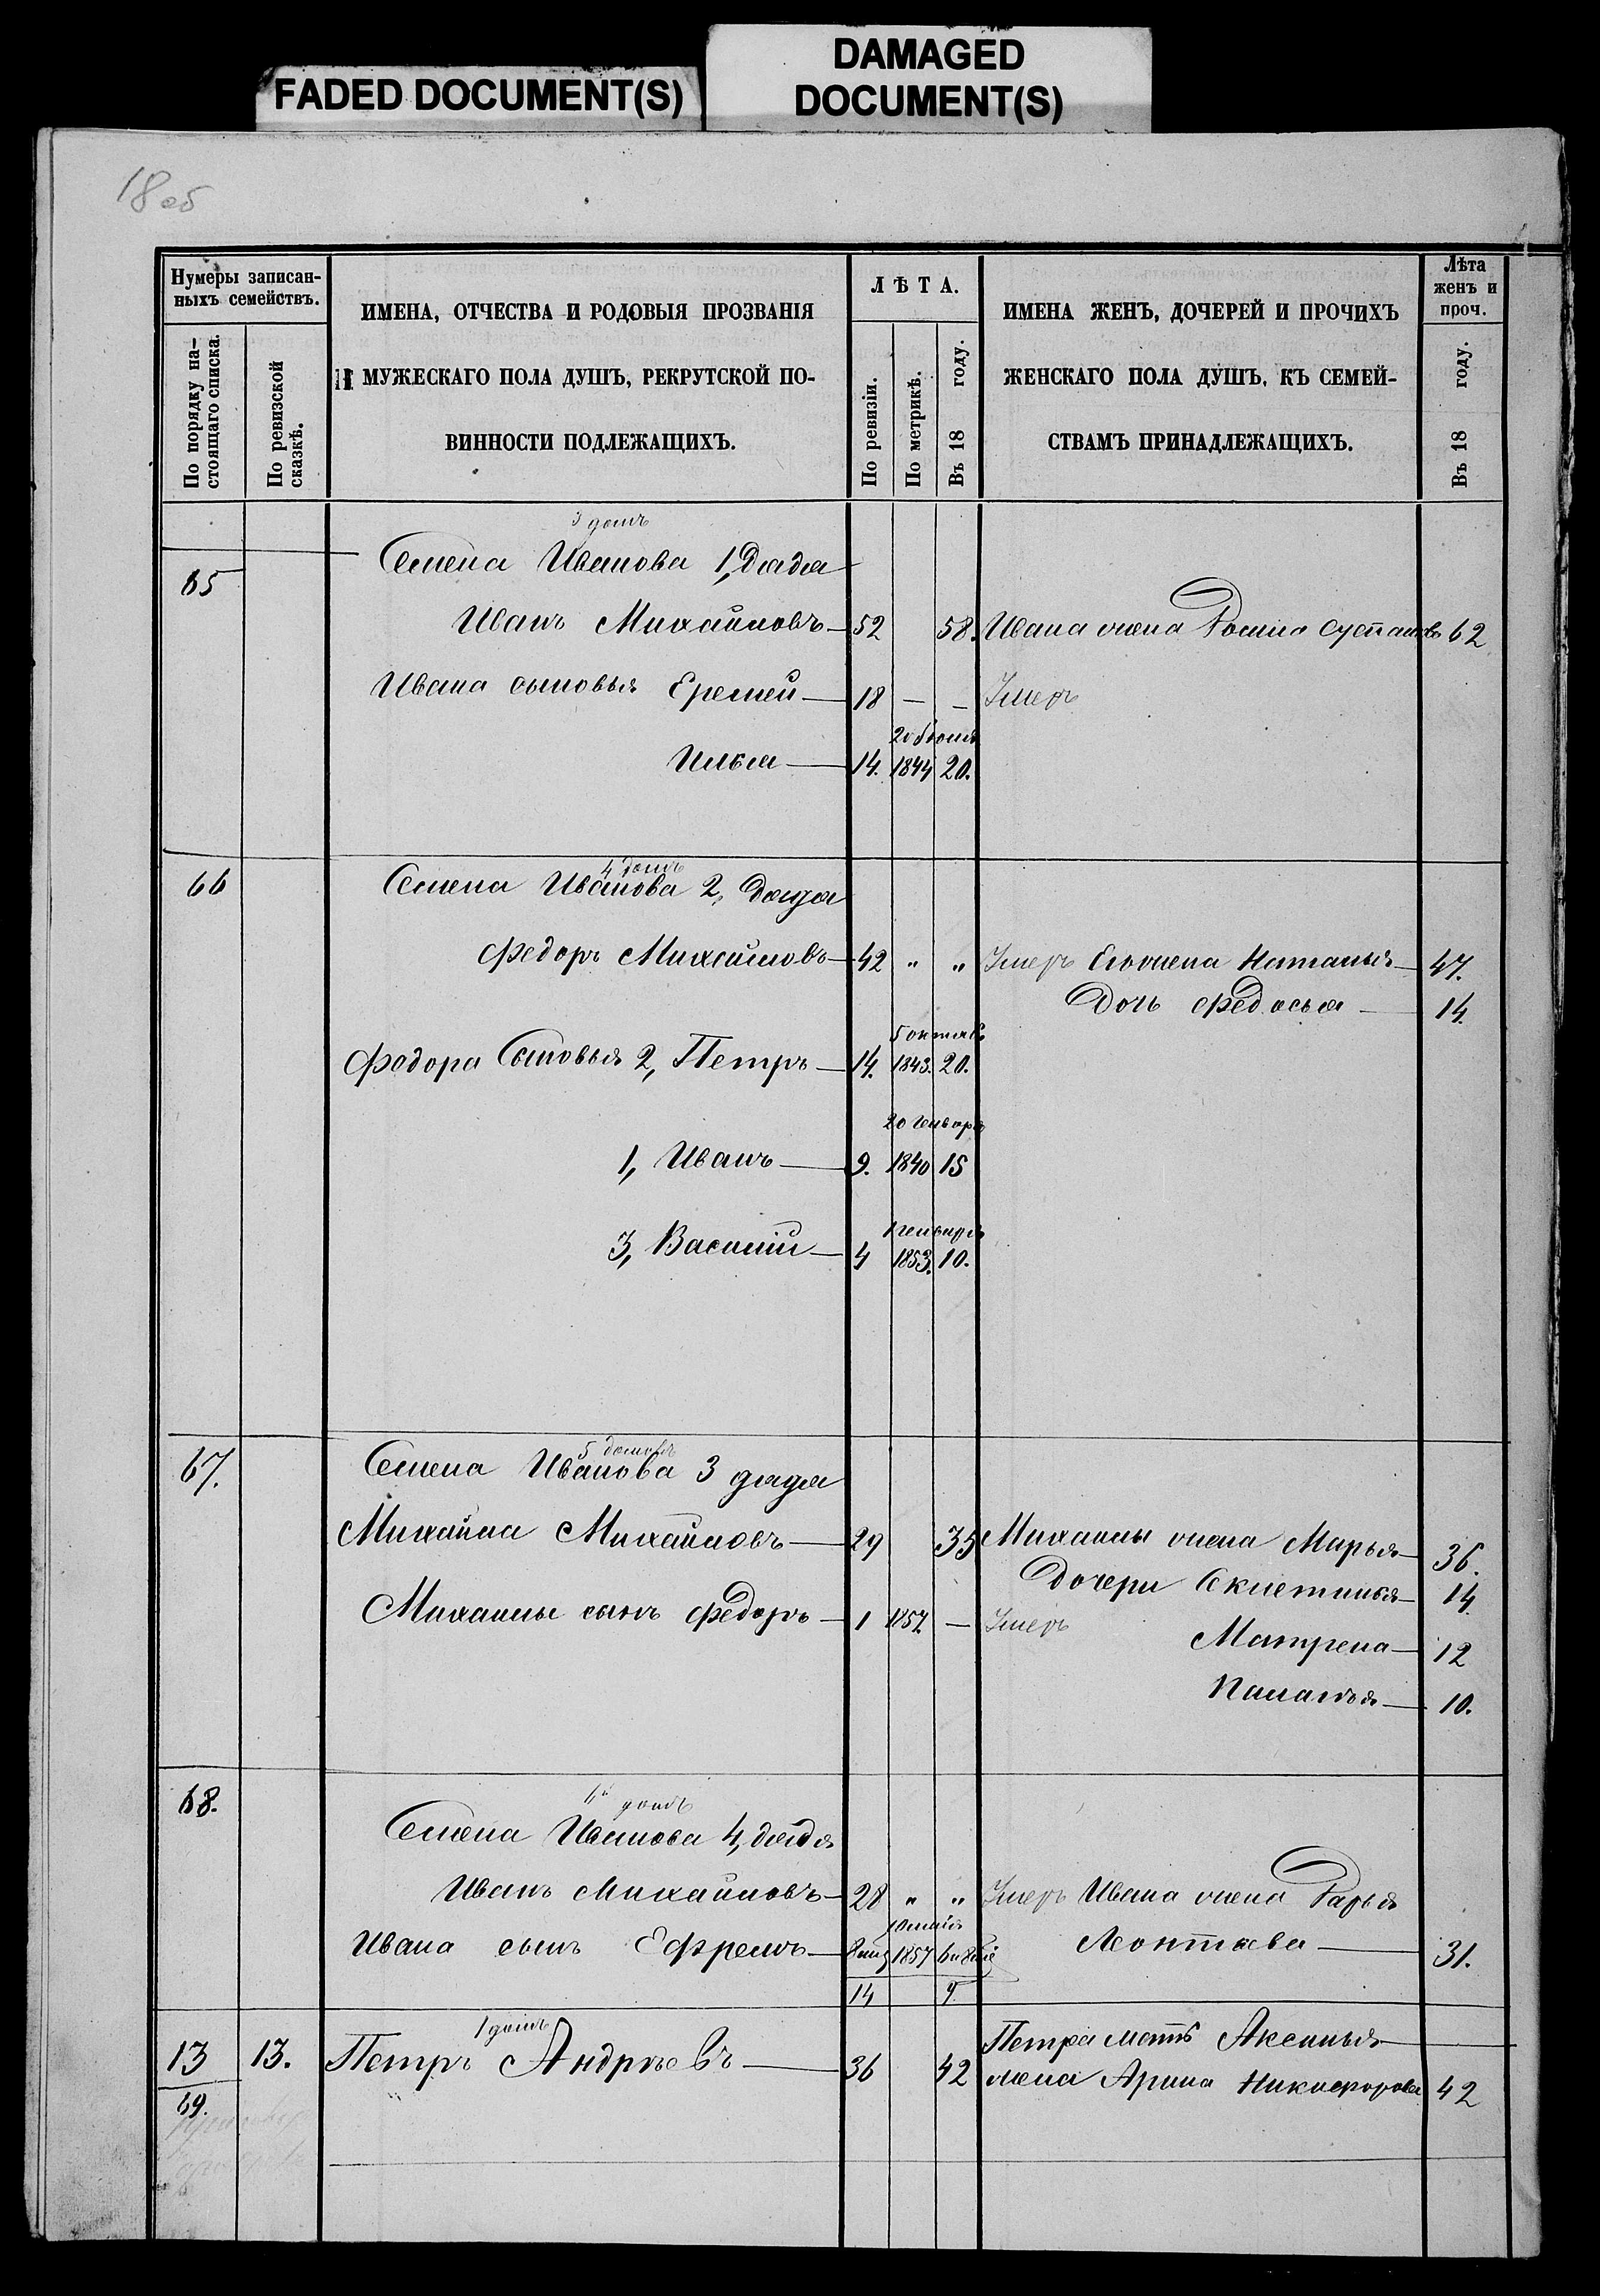 FADED DOCUMENT(S)
DAMAGED
DOCUMENT(S)
18 об
Нумеры записан-
ныхъ семействъ.
По порядку на-
стоящаго списка.
По ревизской
сказкѣ.
ИМЕНА, ОТЧЕСТВА И РОДОВЫЯ ПРОЗВАНІЯ
МУЖЕСКАГО ПОЛА ДУШЪ, РЕКРУТСКОЙ ПО-
ВИННОСТИ ПОДЛЕЖАЩИХЪ.
ЛѢТА.
По ревизіи.
По метрикѣ.
Въ 18 году.
ИМЕНА ЖЕНЪ, ДОЧЕРЕЙ И ПРОЧИХЪ
ЖЕНСКАГО ПОЛА ДУШЪ, КЪ СЕМЕЙ-
СТВАМЪ ПРИНАДЛЕЖАЩИХЪ.
Лѣта
женъ и
проч.
Въ 18 году.
3 домъ
65 Семена Иванова 1, дядя
Иванъ Михайловъ 52 58. Ивана жена 62
Ивана сыновья Еремей 18 — — Умеръ
20 Июля
Илья 14. 1844 20.
4 домъ
66 Семена Иванова 2, дядя
Федоръ Михайловъ 42 " " Умеръ Его жена Наталья 47.
Дочь Федосья 14.
5 октяб
Федора Сыновья 2, Петръ 14. 1843. 20.
20 Генваря
1, Иванъ 9. 1840 15
1 генваря
3, Василій 4 1853. 10.
5 домъ
67. Семена Иванова 3 дядя
Михайла Михайловъ 29 35 Михайлы жена Марья 36.
Дочери 14.
Михайлы сынъ Федоръ 1 1857. — Умеръ
Матрена 12
Палагея 10.
домъ
68. Семена Иванова 4, дядя
Иванъ Михайловъ 28 " " Умеръ Ивана жена Дарья
10 маія
Ивана сынъ Ефремъ 1857 Леонтьева 31.
14 9
1 домъ
Петра мать Аксинья
13 13. Петръ Андреевъ 36 42 жена Арина Никифорова 42
69.